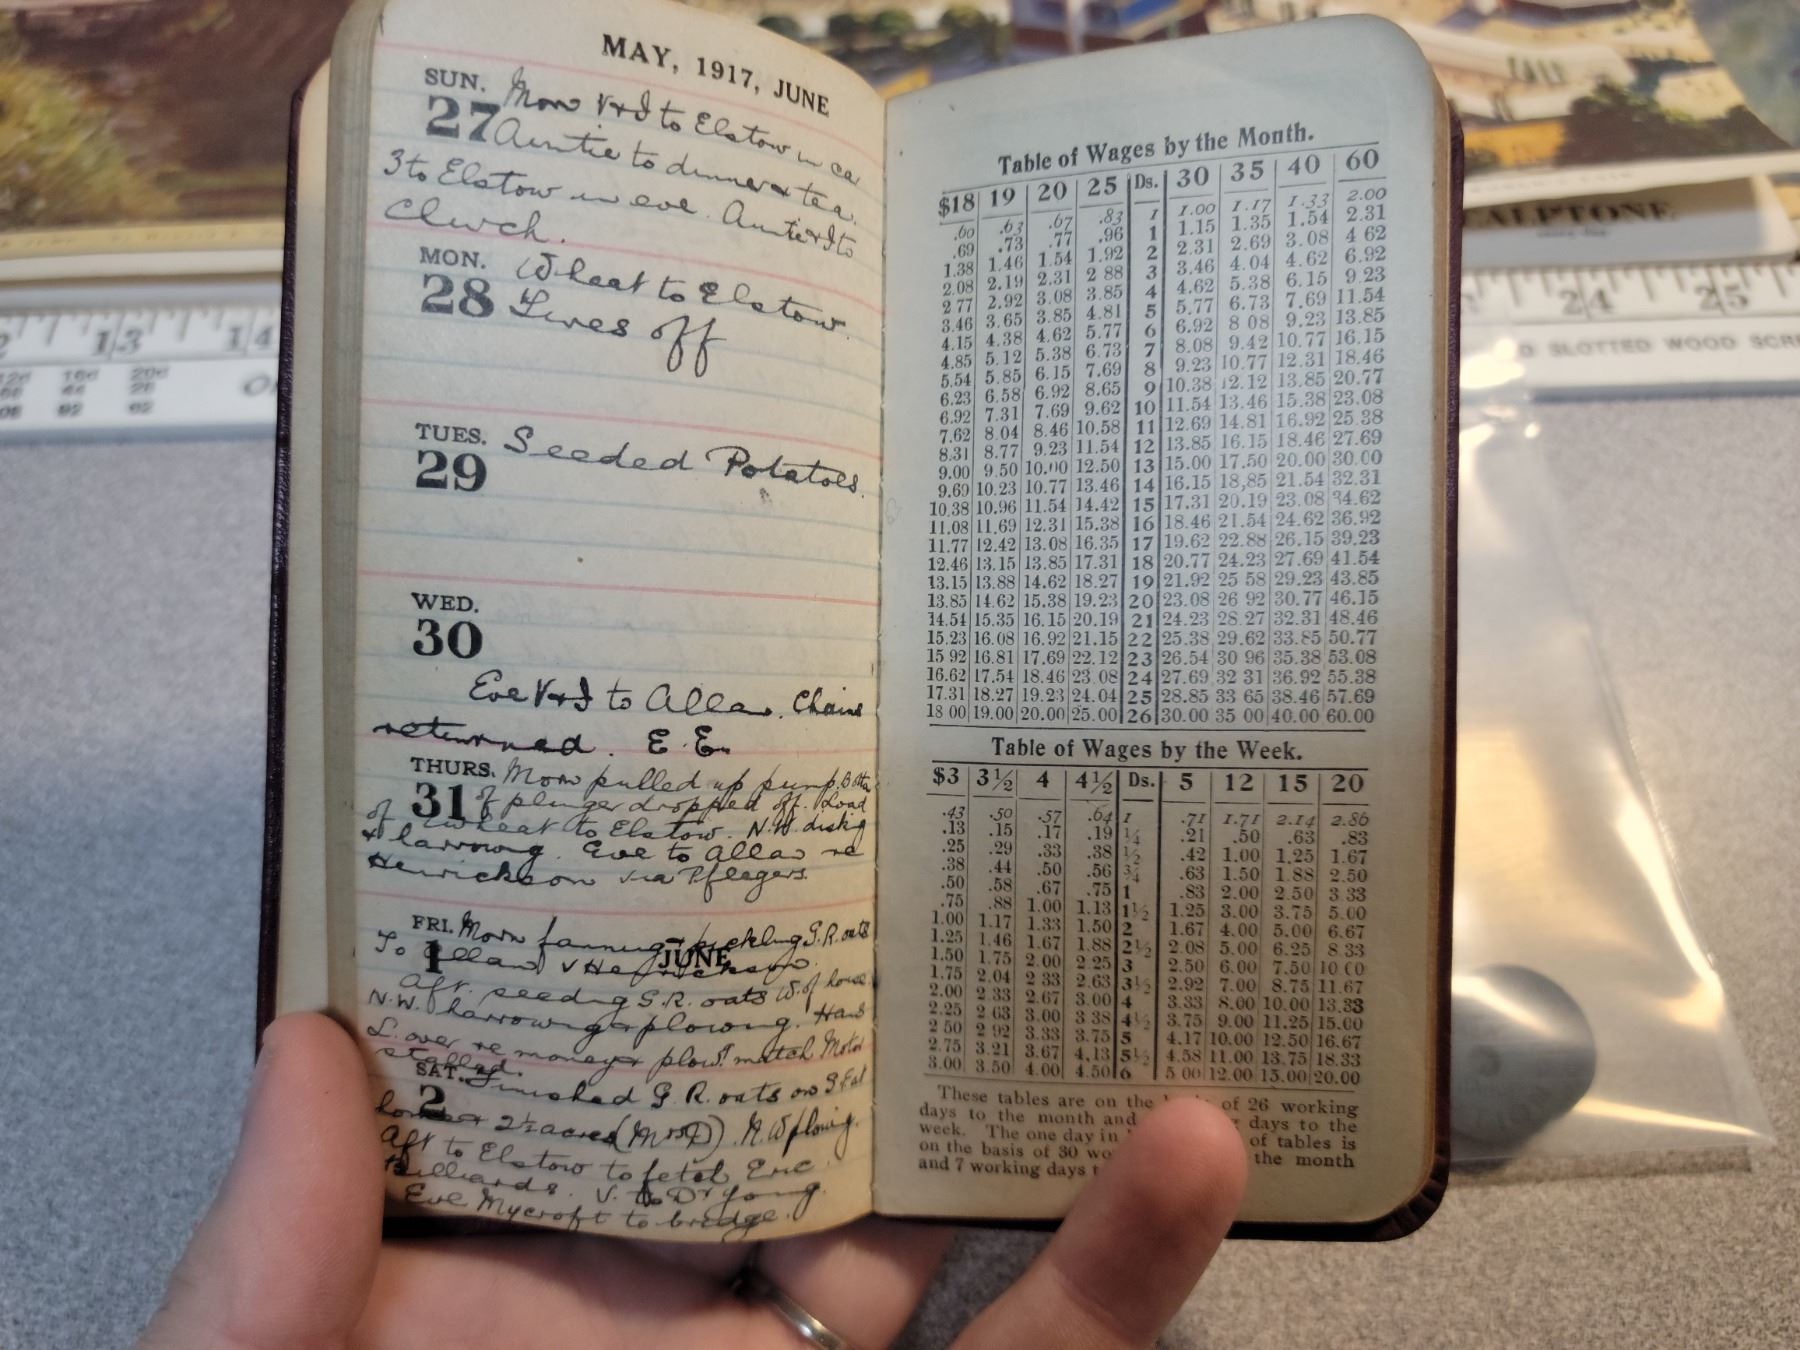 MAY, 1917, JUNE
SUN. Morn V+I to Elstow in car
27 Auntie to dinner + tea.
3 to Elstow in eve. Auntie+I to
Church.
MON. Wheat to Elstow.
28 Lines off
TUES. Seeded Potatoes.
29
WED.
30
Eve V+I to Allan. Chains
returned. E.E.
THURS. Morn pulled up pump. Bottom
31 of plunger dropped off. Load
of Wheat to Elstow. N.W. disking
+ harrowing. Eve to Allan re
Henrickson via Pflegers.
FRI. Morn fanning + pickling G.R. oats
1 JUNE
To Allan v Henrickson.
Aft. seeding G.R. oats W. of house.
N.W. harrowing + plowing. Hans
L. over re money + plow. match Motor
stalled.
SAT. Finished G.R. oats on S. East
2 house + 2½ acres N.W plowing.
Aft to Elstow to fetch Eric
Billiards. V. to Dr Young.
Eve Mycroft to bridge.
Table of Wages by the Month.
$18 19 20 25 Ds. 30 35 40 60
.60 .63 .67 .83 1 1.00 1.17 1.33 2.00
.69 .73 .77 .96 1 1.15 1.35 1.54 2.31
1.38 1.46 1.54 1.92 2 2.31 2.69 3.08 4 62
2.08 2.19 2.31 2 88 3 3.46 4.04 4.62 6.92
2 77 2.92 3.08 3.85 4 4.62 5.38 6.15 9.23
3.46 3.65 3.85 4.81 5 5.77 6.73 7.69 11.54
4.15 4.38 4.62 5.77 6 6.92 8 08 9.23 13.85
4.85 5.12 5.38 6.73 7 8.08 9.42 10.77 16.15
5.54 5.85 6.15 7.69 8 9.23 10.77 12.31 18.46
6.23 6.58 6.92 8.65 9 10.38 12.12 13.85 20.77
6.92 7.31 7.69 9.62 10 11.54 13.46 15.38 23.08
7.62 8.04 8.46 10.58 11 12.69 14.81 16.92 25.38
8.31 8.77 9.23 11.54 12 13.85 16.15 18.46 27.69
9.00 9.50 10.00 12.50 13 15.00 17.50 20.00 30.00
9.69 10.23 10.77 13.46 14 16.15 18,85 21.54 32.31
10.38 10.96 11.54 14.42 15 17.31 20.19 23.08 34.62
11.08 11.69 12.31 15.38 16 18.46 21.54 24.62 36.92
11.77 12.42 13.08 16.35 17 19.62 22.88 26.15 39.23
12.46 13.15 13.85 17.31 18 20.77 24.23 27.69 41.54
13.15 13.88 14.62 18.27 19 21.92 25 58 29.23 43.85
13.85 14.62 15.38 19.23 20 23.08 26 92 30.77 46.15
14.54 15.35 16.15 20.19 21 24.23 28 27 32.31 48.46
15.23 16.08 16.92 21.15 22 25.38 29.62 33.85 50.77
15 92 16.81 17.69 22.12 23 26.54 30 96 35.38 53.08
16.62 17.54 18.46 23.08 24 27.69 32 31 36.92 55.38
17.31 18.27 19.23 24.04 25 28.85 33 65 38.46 57.69
18 00 19.00 20.00 25.00 26 30.00 35 00 40.00 60.00
Table of Wages by the Week.
$3 3½ 4 4½ Ds. 5 12 15 20
.43 .50 .57 .64 1 .71 1.71 2.14 2.86
.13 .15 .17 .19 ¼ .21 .50 .63 .83
.25 .29 .33 .38 ½ .42 1.00 1.25 1.67
.38 .44 .50 .56 ¾ .63 1.50 1.88 2.50
.50 .58 .67 .75 1 .83 2.00 2.50 3.33
.75 .88 1.00 1.13 1½ 1.25 3.00 3.75 5.00
1.00 1.17 1.33 1.50 2 1.67 4.00 5.00 6.67
1.25 1.46 1.67 1.88 2½ 2.08 5.00 6.25 8.33
1.50 1.75 2.00 2.25 3 2.50 6.00 7.50 10 00
1.75 2.04 2 33 2.63 3½ 2.92 7.00 8.75 11.67
2.00 2.33 2.67 3.00 4 3.33 8.00 10.00 13.33
2.25 2 63 3.00 3 38 4½ 3.75 9.00 11.25 15.00
2 50 2 92 3.33 3.75 5 4.17 10.00 12.50 16.67
2.75 3.21 3.67 4.13 5½ 4.58 11.00 13.75 18.33
3.00 3.50 4.00 4.50 6 5 00 12.00 15.00 20.00
These tables are on the of 26 working
days to the month and days to the
week. The one day in of tables is
on the basis of 30 the month
and 7 working days
ALPTONE
12 13 14
24 25
16d 20d
D SLOTTED WOOD SCRE